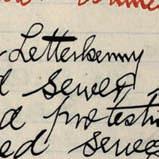 Letterkenny
d sewer,
d protesti
ed sewer